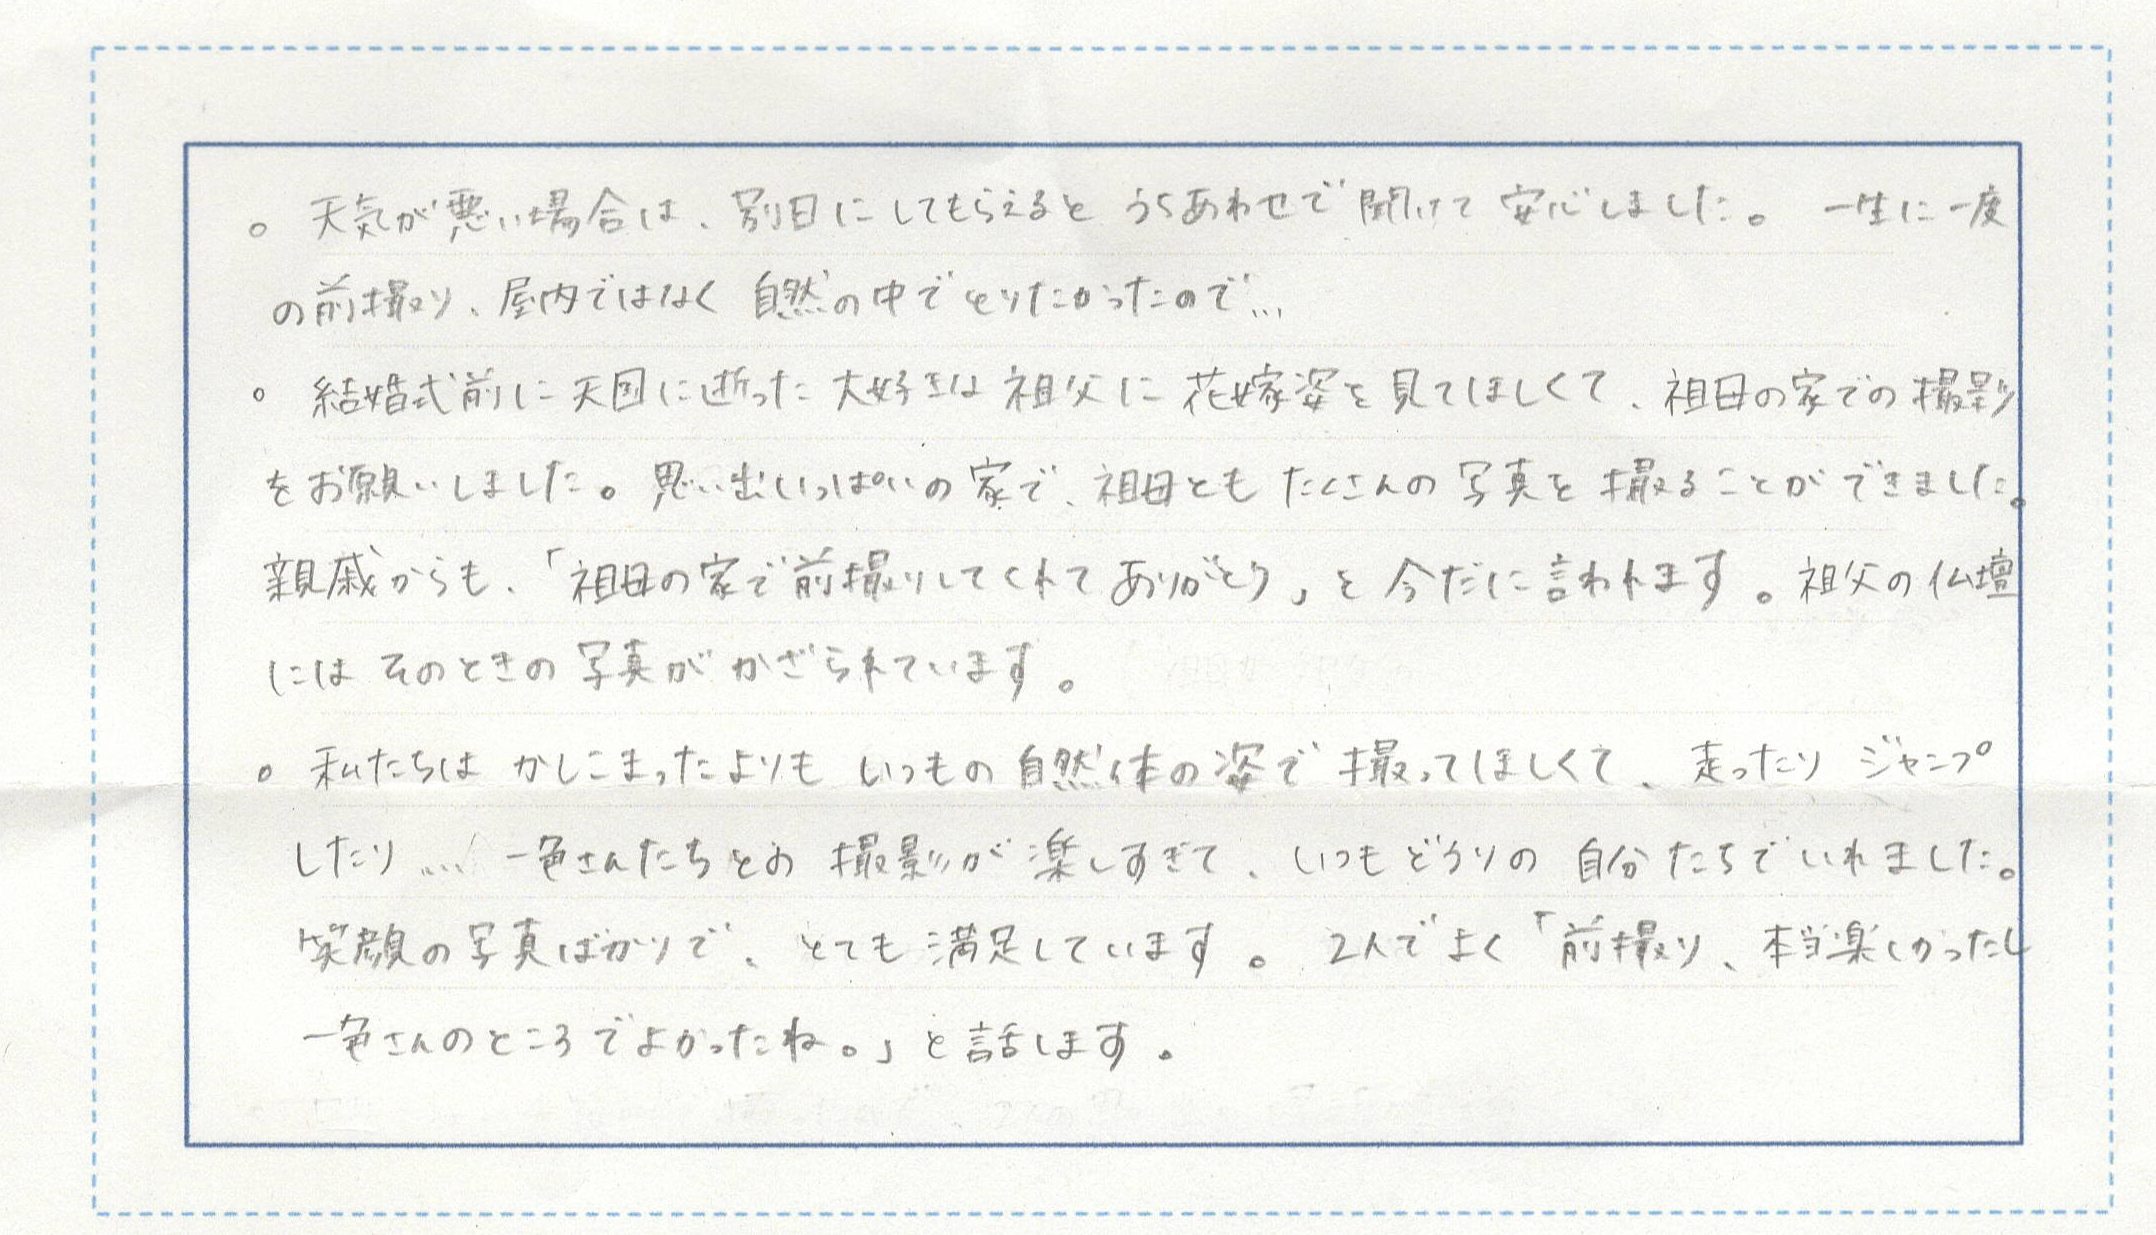 。天気が悪い場合は、別日にしてもらえると うちあわせで聞けて 安心しました。一生に一度
の前撮り、屋内ではなく 自然の中でとりたかったので…
。結婚式前に天国に逝った大好きな祖父に花嫁姿を見てほしくて、祖母の家での撮影
をお願いしました。思い出いっぱいの家で、祖母とも たくさんの写真を撮ることができました。
親戚からも、「祖母の家で前撮りしてくれてありがとう」と今だに言われます。祖父の仏壇
には そのときの写真がかざられています。
。私たちは かしこまったよりも いつもの自然体の姿で撮ってほしくて、走ったり ジャンプ
したり… 一色さんたちとの 撮影が楽しすぎて、いつもどうりの 自分たちでいれました。
笑顔の写真ばかりで、とても満足しています。2人でよく「前撮り、本当楽しかったし
一色さんのところでよかったね。」と話します。